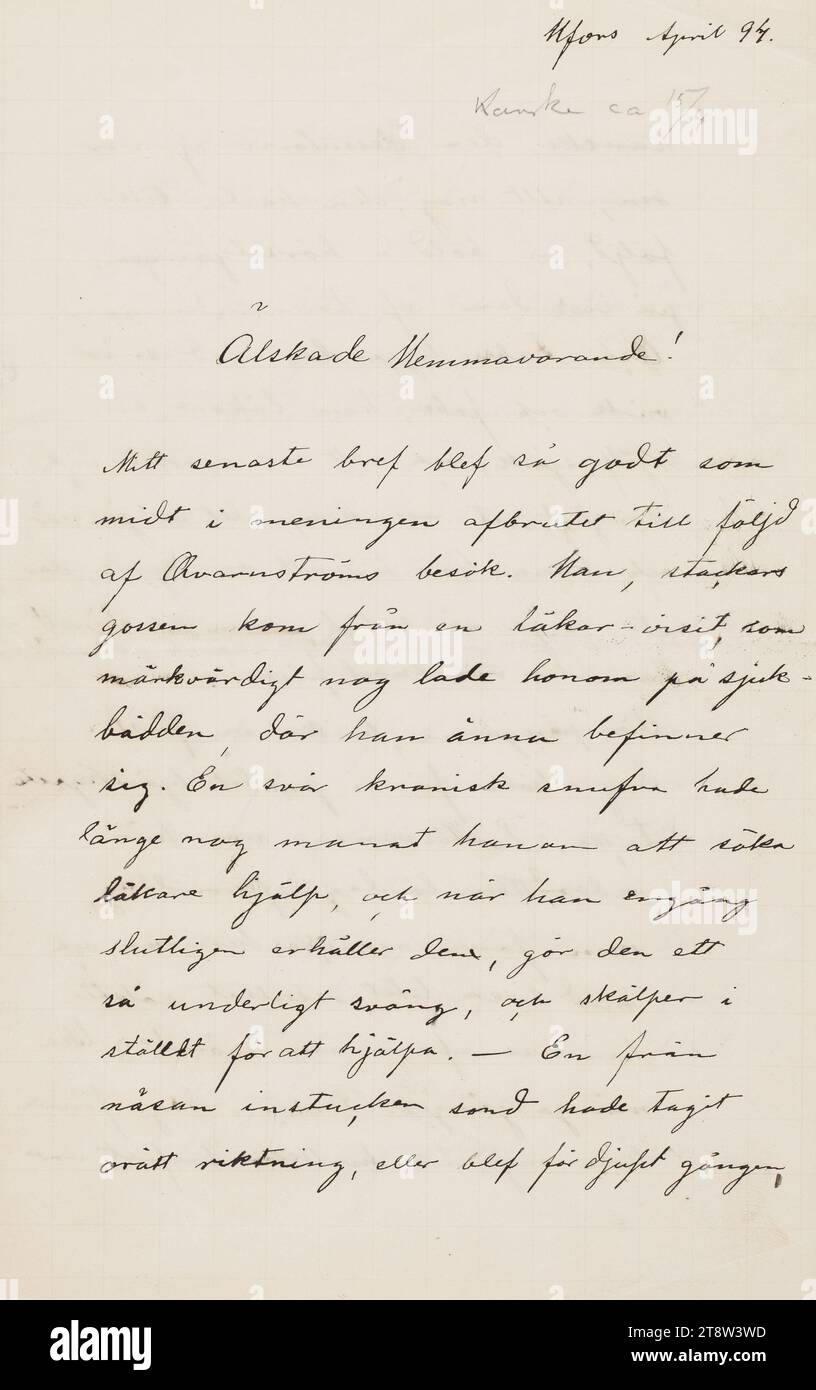 Hfors April 94.
Kanske ca 15/4
Älskade Hemmavarande!
Mitt senaste bref blef så godt som
midt i meningen afbrutet till följd
af Qvarnströms besök. Han, stackars
gossen kom från en läkar-visit, som
märkvärdigt nog lade honom på sjuk-
bädden, där han ännu befinner
sig. En svår kronisk snufva hade
länge nog manat honom att söka
läkare hjälp, och när han engång
slutligen erhåller den, gör den ett
så underligt sväng, och skälper i
stället för att hjälpa. — En från
näsan instucken sond hade tagit
orätt riktning, eller blef för djupt gången,
alamy
Image ID: 2T8W3WD
www.alamy.com